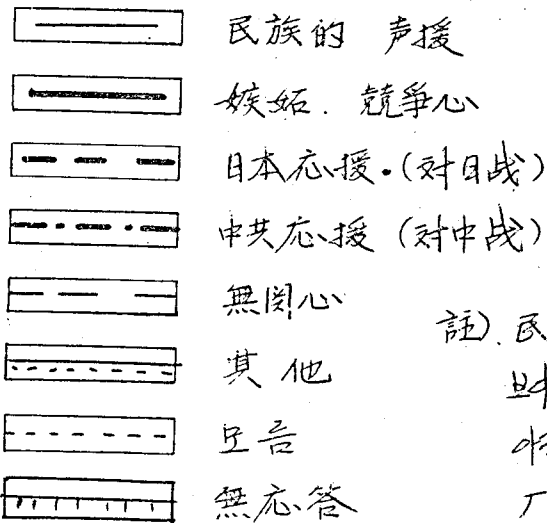 民族的 声援
嫉妬. 競爭心
日本応援.(対日战)
中共応援 (対中战)
無関心
其他
모름
無応答
註). 民